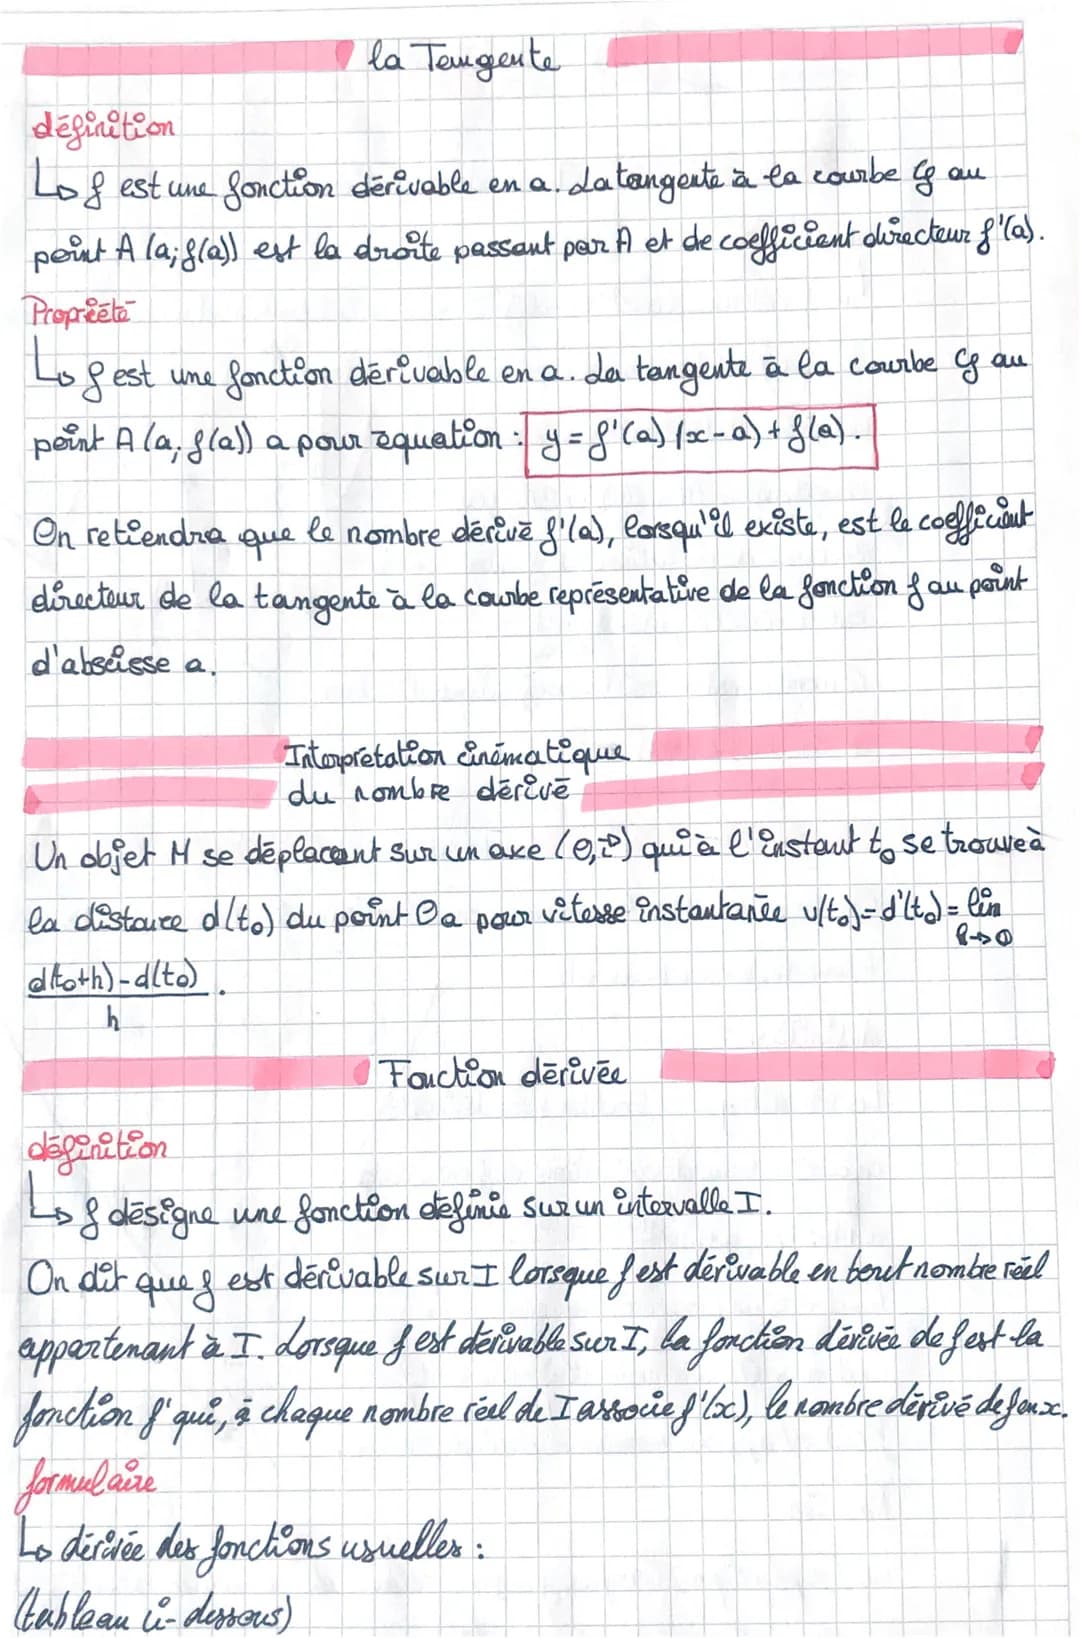 la Tangente
définition
↳ f est une fonction dérivable en a. La tangente à la courbe Cf au
point A (a; f(a)) est la droite passant par A et de coefficient directeur f'(a).
Propriété
↳ f est une fonction dérivable en a. La tangente à la courbe Cf au
point A (a; f(a)) a pour équation : y = f'(a) (x - a) + f(a).
On retiendra que le nombre dérivé f'(a), lorsqu'il existe, est le coefficient
directeur de la tangente à la courbe représentative de la fonction f au point
d'abscisse a.
Interprétation cinématique
du nombre dérivé
Un objet M se déplaçant sur un axe (O, i) qui à l'instant t₀ se trouve à
la distance d(t₀) du point O a pour vitesse instantanée v(t₀) = d'(t₀) = lim
h→0
d(t₀+h) - d(t₀) .
h
Fonction dérivée
définition
↳ f désigne une fonction définie sur un intervalle I.
On dit que f est dérivable sur I lorsque f est dérivable en tout nombre réel
appartenant à I. Lorsque f est dérivable sur I, la fonction dérivée de f est la
fonction f' qui, à chaque nombre réel de I associe f'(x), le nombre dérivé de f en x.
formulaire
↳ dérivée des fonctions usuelles :
(tableau ci-dessous)